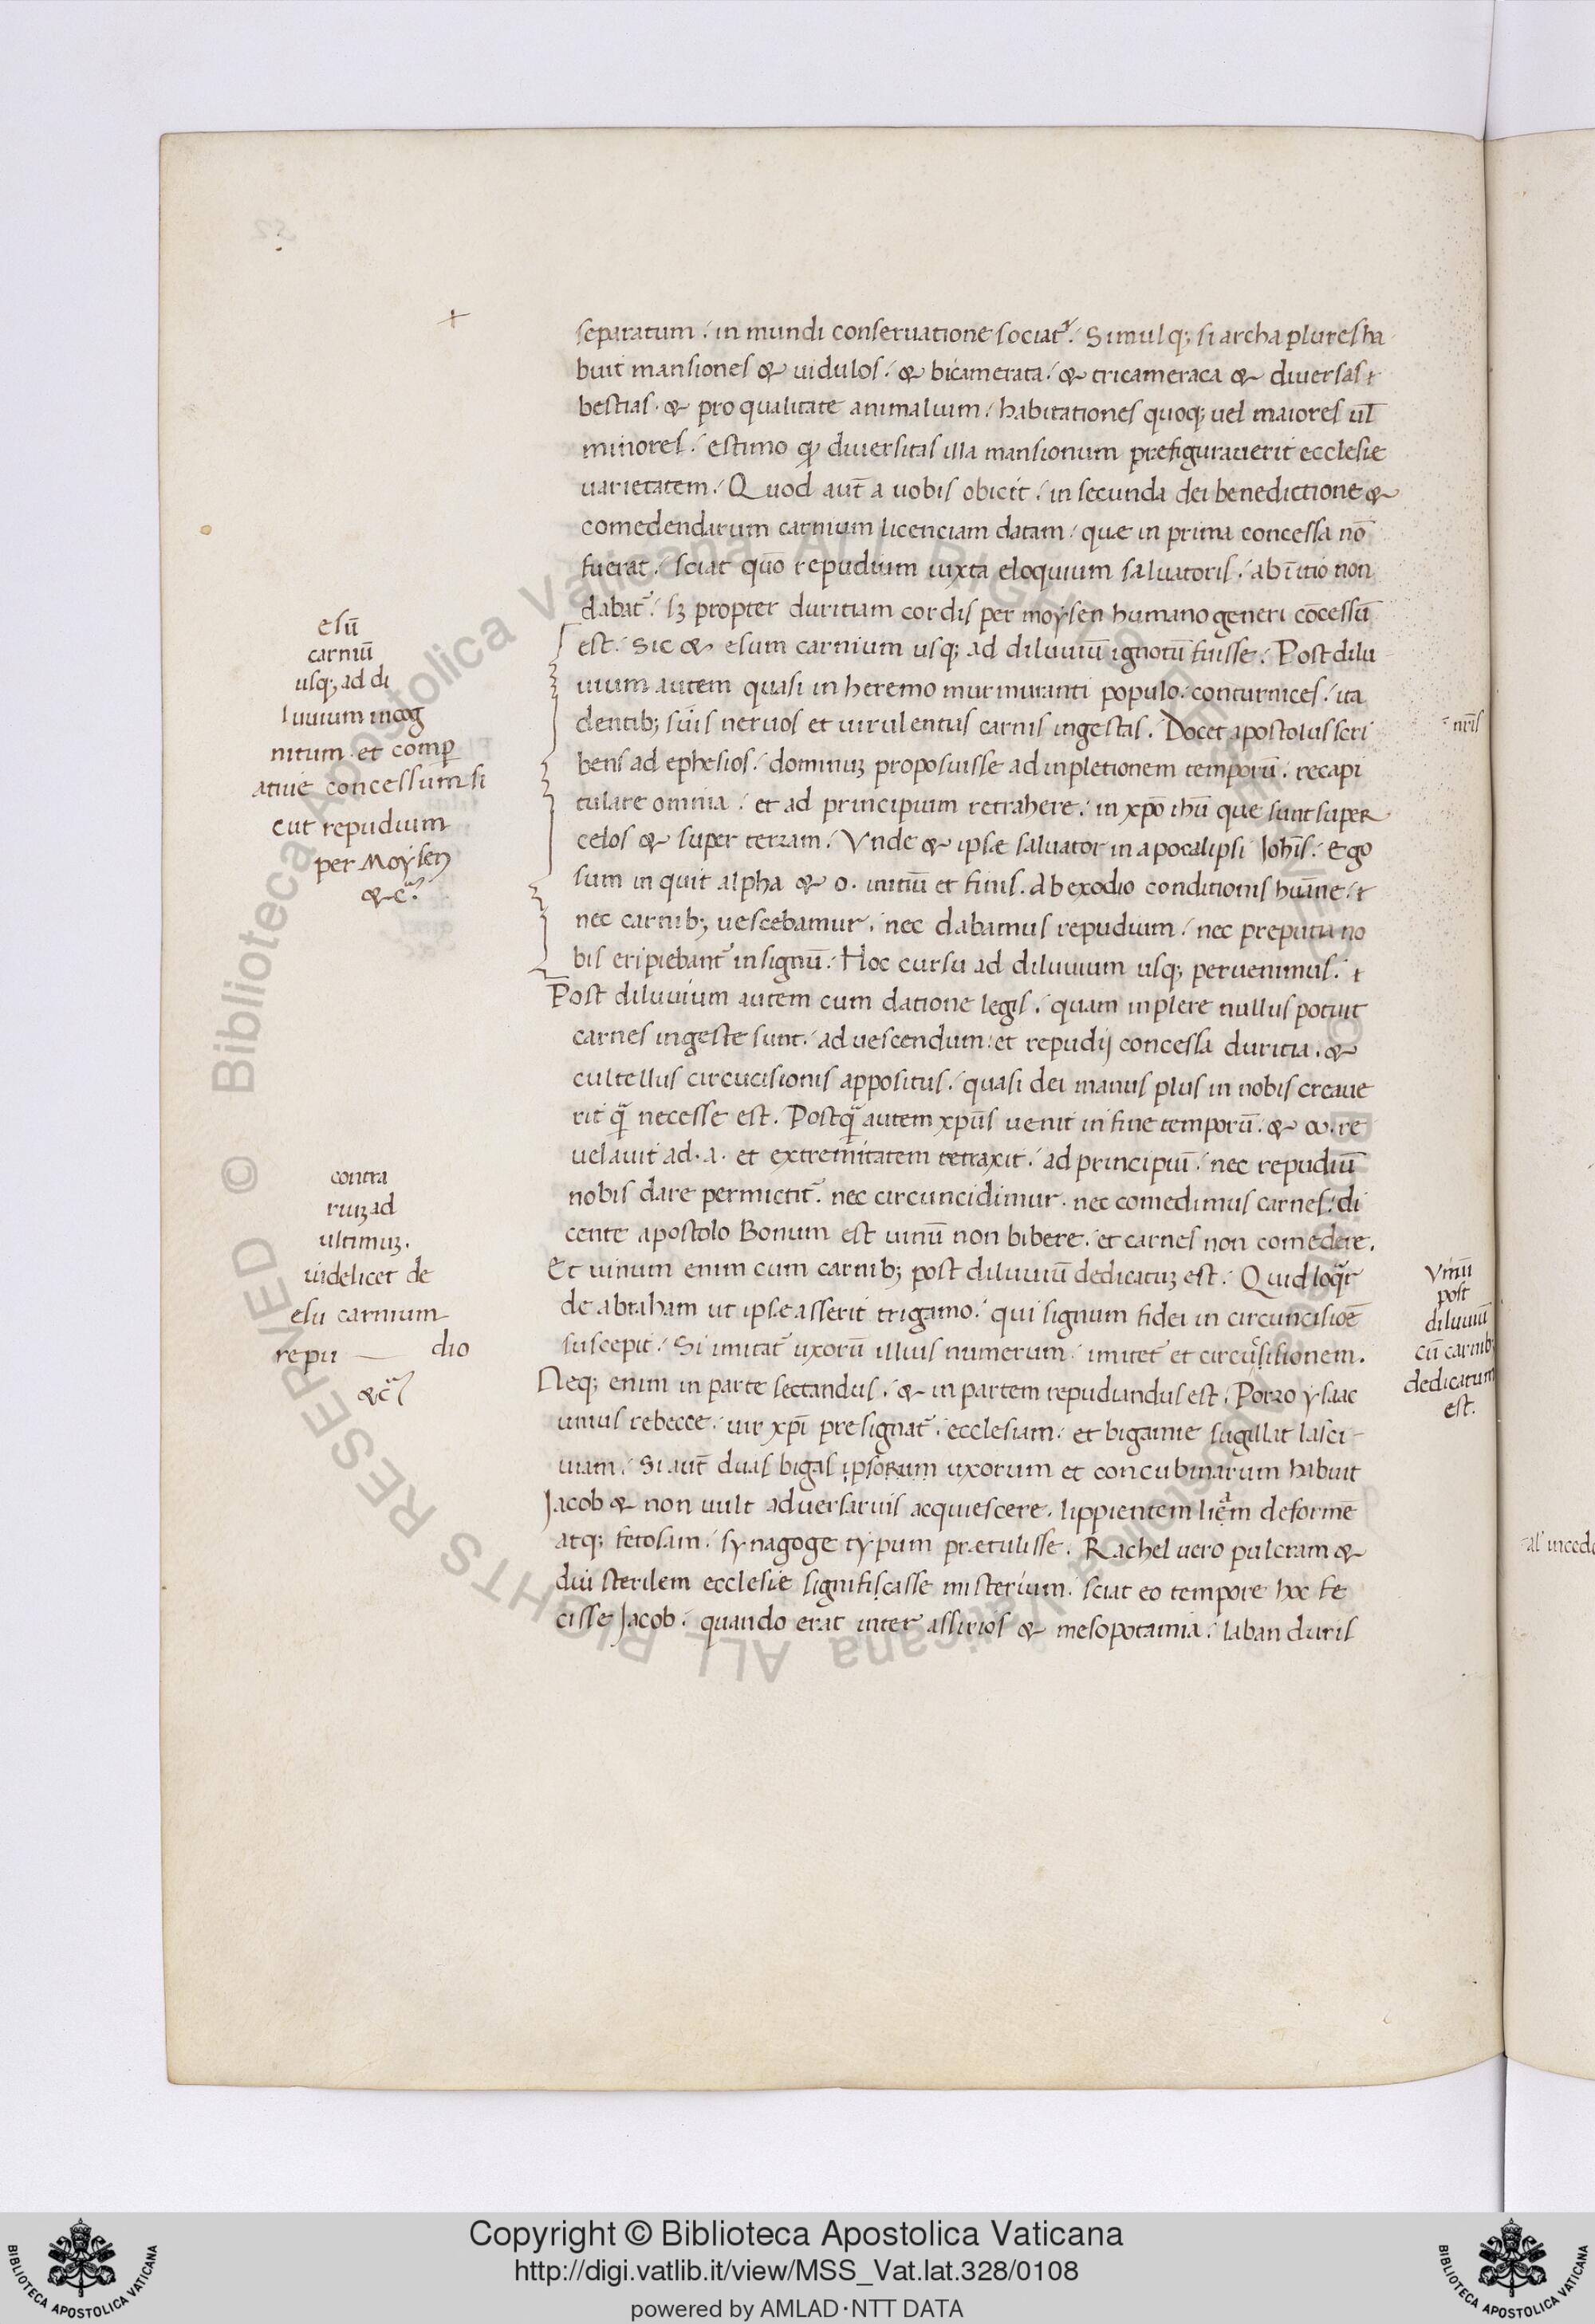 separatum. in mundi conseruatione sociat᷑. Simulq; si archa plures ha
buit mansiones & nidulos. & bicamerata. & tricamerata & diuersas
bestias. & pro qualitate animalium. habitationes quoq; uel maiores ul̄
minores. estimo ꝙ diuersitas illa mansionum prefigurauerit ecclesie
uarietatem. Quod aut̄ a uobis obicit. in secunda dei benedictione &
comedendarum carnium licenciam datam. quæ in prima concessa nō
fuerat. sciat quō repudium iuxta eloquium saluatoris. ab ītio non
dabat᷑. sꝫ propter duritiam cordis per moẏsen humano generi cōcessū
est. Sic & esum carnium usq; ad diluuiū ignotū fuisse. Post dilu
uium autem quasi in heremo murmuranti populo. coturnices. ita
dentib; suis neruos et uirulentas carnis ingestas. Docet apostolus scri
bens ad ephesios. dominuꝫ proposuisse ad inpletionem temporū. recapi
tulare omnia. et ad principium retrahere. in xp̄o ihū que sunt super
celos & super terram. Vnde & ipse saluator in apocalipsi Johīs. Ego
sum inquit alpha & o. initiū et finis. Ab exodio conditionis huāne.
nec carnib; uescebamur. nec dabamus repudium. nec preputia no
bis eripiebant᷑ in signū. Hoc cursu ad diluuium usq; peruenimus.
Post diluuium autem cum datione legis. quam inplere nullus potuit
carnes ingeste sunt. ad uescendum. et repudij concessa duritia. &
cultellus circūcisionis appositus. quasi dei manus plus in nobis creaue
rit q̄ necesse est. Postq̄ autem xp̄us uenit in fine temporū. & ω. re
uelauit ad. a. et extremitatem retraxit. ad principiū. nec repudiū
nobis dare permictit᷑. nec circuncidimur. nec comedimus carnes. di
cente apostolo Bonum est uinū non bibere. et carnes non comedere.
Et uinum enim cum carnib; post diluuiū dedicatuꝫ est. Quid loq̄r
de abraham ut ipse asserit trigamo. qui signum fidei in circuncisiōe
suscepit. Si imitat᷑ uxorū illius numerum. imitet᷑ et circūsisionem.
Neq; enim in parte sectandus. & in partem repudiandus est. Porro ẏsaac
unius rebecce. uir xp̄i presignat᷑. ecclesiam. et bigamie sugillat lasci-
uiam. Si aut̄ duas bigas ipsorum uxorum et concubinarum habuit
Jacob & non uult aduersarius acquiescere. lippientem liam deformē
atq; fetosam. sẏnagoge tẏpum prætulisse. Rachel uero pulcram &
diu sterilem ecclesie signifiscasse misterium. sciat eo tempore hoc fe
cisse Jacob. quando erat inter assirios & mesopotamia. laban duris
esū
carniū
usq; ad di
luuium incog
nitum. et comp̄
atiue concessum si
cut repudium
per Moẏsen
&c̄
contra
riuꝫ ad
ultimuꝫ.
uidelicet de
esu carnium
repu — dio
&c̄
Vinū
post
diluuiū
cū carnib;
dedicatum
est.
Copyright © Biblioteca Apostolica Vaticana
http://digi.vatlib.it/view/MSS_Vat.lat.328/0108
powered by AMLAD·NTT DATA
© Biblioteca Apostolica Vaticana ALL RIGHTS RESERVED
BIBLIOTECA APOSTOLICA VATICANA
BIBLIOTECA APOSTOLICA VATICANA